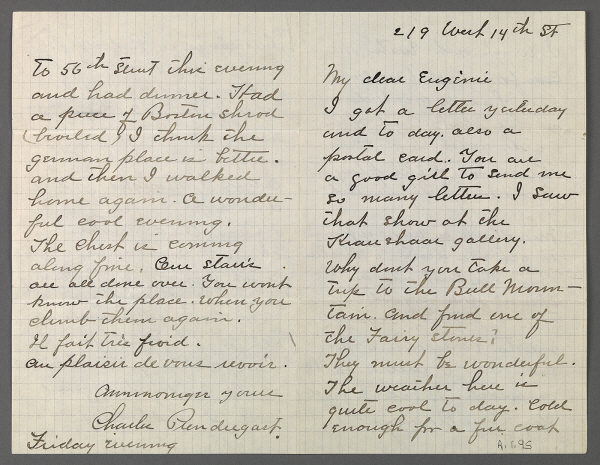 219 West 14th St
My dear Eugénie
I got a letter yesterday
and to day. also a
postal card. You are
a good girl to send me
so many letters. I saw
that show at the
Kraushaar gallery.
Why dont you take a
trip to the Bull Moun-
tain. and find one of
the Fairy stones?
They must be wonderful.
The weather here is
quite cool to day. Cold
enough for a fur coat
A.695
to 56th Street this evening
and had dinner. Had
a piece of Boston shrod
(broiled) I think the
german place is better.
and then I walked
home again. a wonder-
ful cool evening.
The chest is coming
along fine. Our stairs
are all done over. You wont
know the place. When you
climb them again.
Il fait très froid.
au plaisir de vous revoir.
yours
Charlie Prendergast.
Friday evening